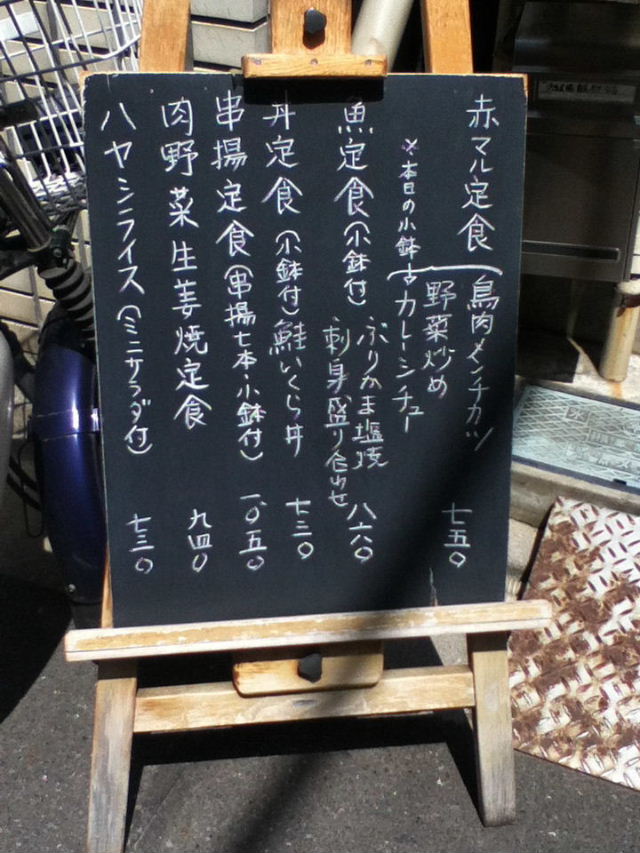 赤マル定食
鳥肉メンチカツ
野菜炒め
七五〇
※本日の小鉢 カレーシチュー
魚定食(小鉢付)
ぶりかま塩焼
刺身盛り合わせ
八六〇
丼定食(小鉢付)鮭いくら丼 七三〇
串揚定食(串揚七本・小鉢付) 一、〇五〇
肉野菜生姜焼定食 九四〇
ハヤシライス(ミニサラダ付) 七三〇